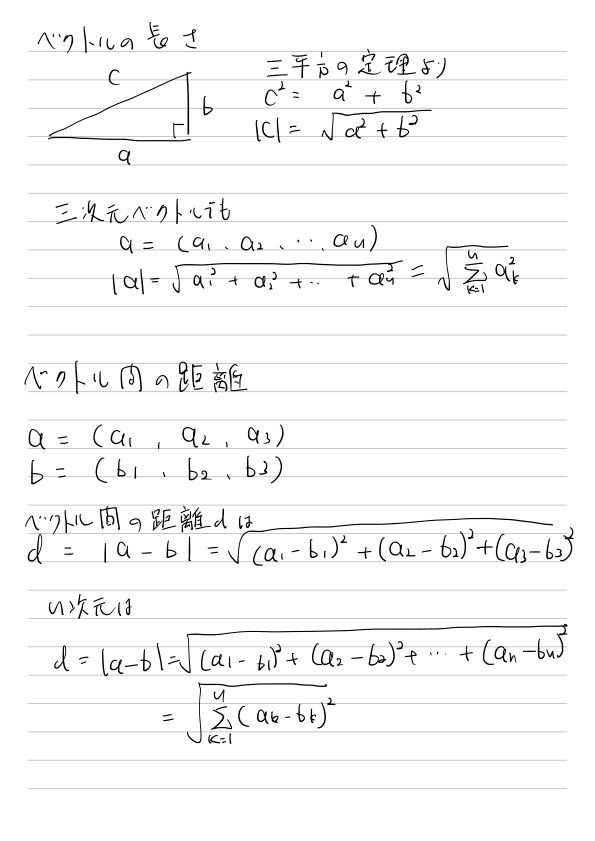 ベクトルの長さ
三平方の定理より
c
b
a
c² = a² + b²
|c| = √(a² + b²)
三次元ベクトルでも
a = (a₁、a₂、…、aₙ)
|a| = √(a₁² + a₂² + … + aₙ²) = √(Σₖ₌₁ⁿ aₖ²)
ベクトル間の距離
a = (a₁, a₂, a₃)
b = (b₁, b₂, b₃)
ベクトル間の距離dは
d = |a - b| = √((a₁-b₁)² + (a₂-b₂)² + (a₃-b₃)²)
n次元は
d = |a-b| = √((a₁-b₁)² + (a₂-b₂)² + … + (aₙ-bₙ)²)
= √(Σₖ₌₁ⁿ (aₖ-bₖ)²)